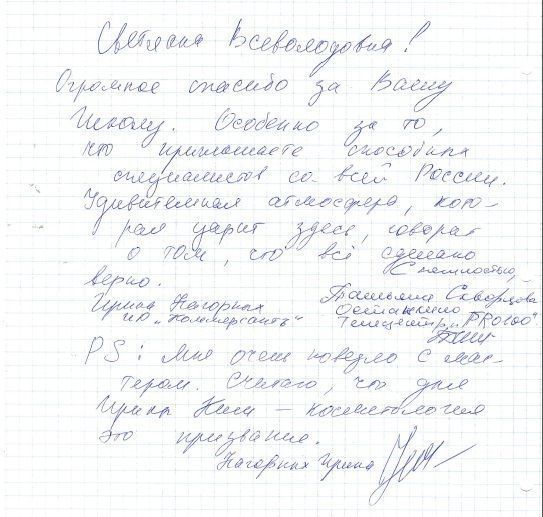 Светлана Всеволодовна!
Огромное спасибо за Вашу
Школу. Особенно за то,
что приглашаете способных
специалистов со всей России.
Удивительная атмосфера, кото-
рая царит здесь, говорит
о том, что всё сделано
верно. С нежностью,
Ирина Нагорных Татьяна Скворцова
ИД "Коммерсантъ" Останкино
Телецентр
PS: Мне очень повезло с мас-
тером. Считаю, что для
Ирины Ким – косметология
это призвание.
Нагорных Ирина